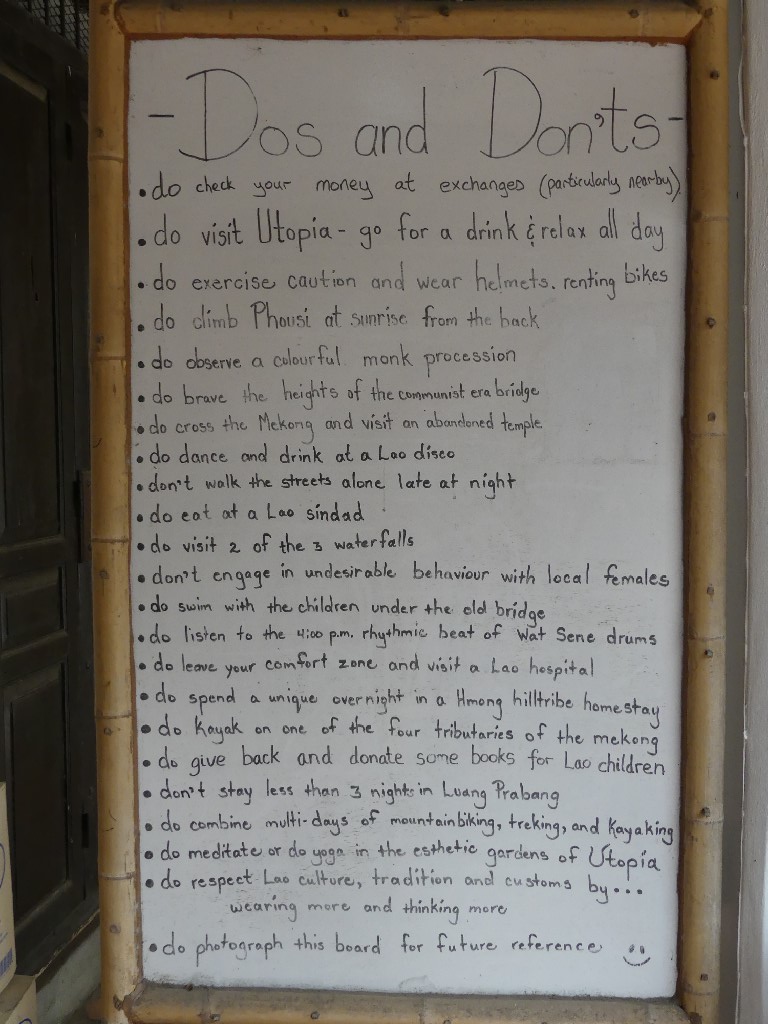 - Dos and Don'ts -
• do check your money at exchanges (particularly nearby)
• do visit Utopia - go for a drink & relax all day
• do exercise caution and wear helmets. renting bikes
• do climb Phousi at sunrise from the back
• do observe a colourful monk procession
• do brave the heights of the communist era bridge
• do cross the Mekong and visit an abandoned temple
• do dance and drink at a Lao disco
• don't walk the streets alone late at night
• do eat at a Lao sindad
• do visit 2 of the 3 waterfalls
• don't engage in undesirable behaviour with local females
• do swim with the children under the old bridge
• do listen to the 4:00 p.m. rhythmic beat of Wat Sene drums
• do leave your comfort zone and visit a Lao hospital
• do spend a unique overnight in a Hmong hilltribe homestay
• do Kayak on one of the four tributaries of the mekong
• do give back and donate some books for Lao children
• don't stay less than 3 nights in Luang Prabang
• do combine multi-days of mountainbiking, treking, and Kayaking
• do meditate or do yoga in the esthetic gardens of Utopia
• do respect Lao culture, tradition and customs by...
wearing more and thinking more
• do photograph this board for future reference